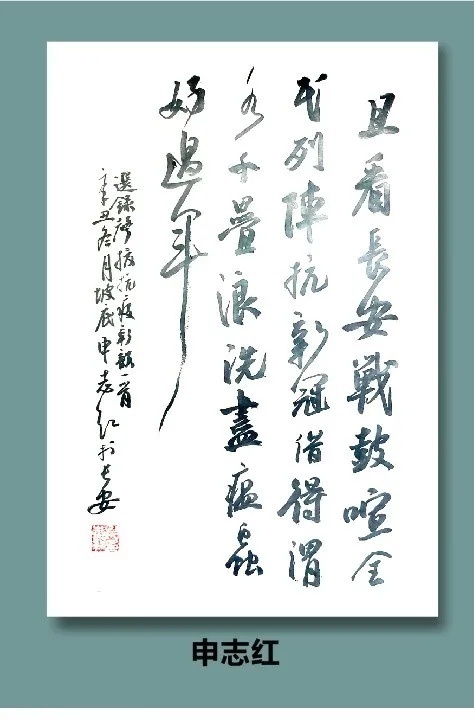 且看長安戰鼓喧全
民列陣抗新冠借得渭
水千疊浪洗盡瘟蟲
好過年
選録聲援抗疫新韻一首
辛丑冬月坡底申志紅於長安
申志红